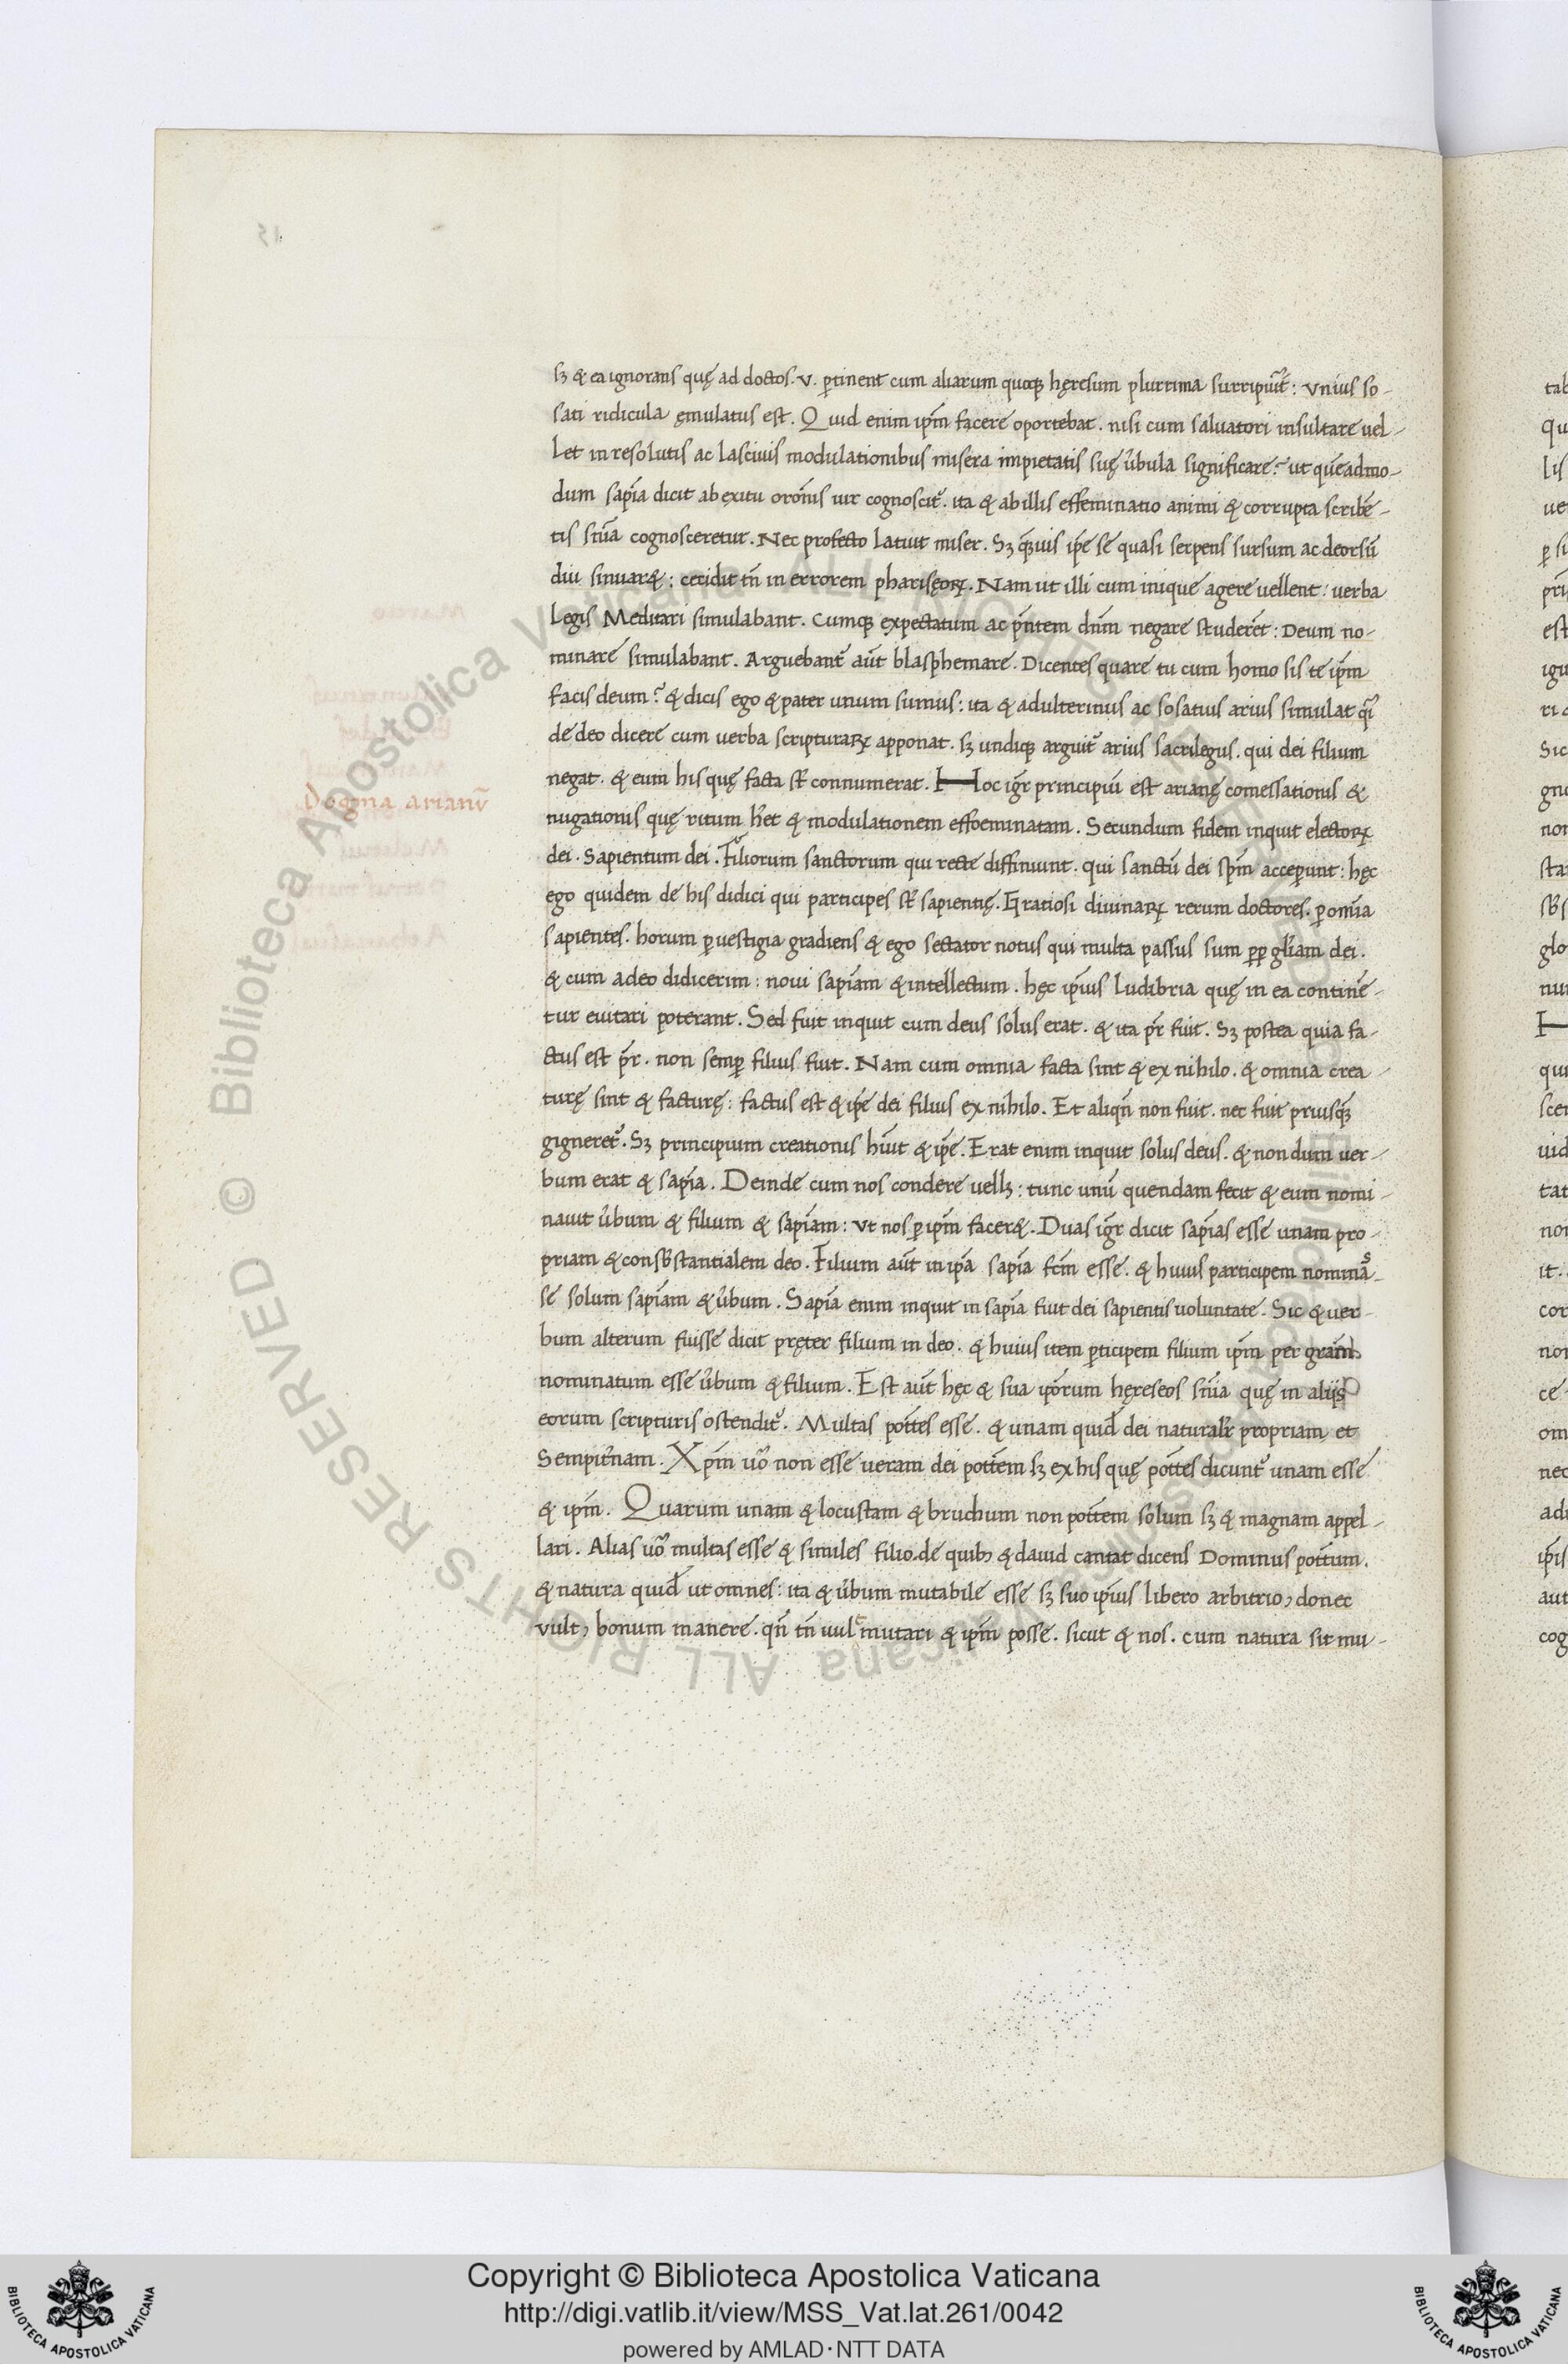 sꝫ & ea ignorans quę ad doctos. v. ꝑtinent cum aliarum quoqꝫ hęresum plurima surripiu̅t: vnius so-
sati ridicula ęmulatus est. Quid enim ip̅m facere oportebat. nisi cum saluatori insultare uel-
let in resolutis ac lasciuis modulationibus misera impietatis suę u̅bula significare? ut que̅admo-
dum sapi̅a dicit ab exitu oro̅nis uir cognoscit᷑. ita & ab illis effeminatio animi & corrupta scribe̅-
tis sn̅ia cognosceretur. Nec profecto latuit miser. Sꝫ qꝫuis ip̅e se quasi serpens sursum ac deorsu̅
diu sinuarꝫ: cecidit tn̅ in errorem phariseoꝝ. Nam ut illi cum inique agere uellent: uerba
legis Meditari simulabant. Cumqꝫ expectatum ac pn̅tem dn̅m negare studere̅t: Deum no-
minare simulabant. Arguebant᷑ aut̅ blasphemare. Dicentes quare tu cum homo sis te ip̅m
facis deum? & dicis ego & pater unum sumus: ita & adulterinus ac sosatius arius simulat qͥ
de deo dicere cum uerba scripturaꝝ apponat. sꝫ undiqꝫ arguit᷑ arius sacrilegus. qui dei filium
negat. & eum his quę facta st̅ connumerat. Hoc igr̅ principiu̅ est arianę comessationis &
Dogma arianu̅
nugationis quę ritum h̅et & modulationem effoeminatam. Secundum fidem inquit electoꝝ
dei. Sapientum dei. Filiorum sanctorum qui recte diffiniunt. qui sanctu̅ dei sp̅m acceꝑunt: hęc
ego quidem de his didici qui participes st̅ sapientię. Gratiosi diuinaꝝ rerum doctores. ꝑ om̅ia
sapientes. horum ꝑ uestigia gradiens & ego sectator notus qui multa passus sum ꝓp gl̅iam dei.
& cum a deo didicerim: noui sapi̅am & intellectum. hęc ip̅ius ludibria quę in ea contine̅-
tur euitari poterant. Sed fuit inquit cum deus solus erat. & ita pr̅ fuit. Sꝫ postea quia fa-
ctus est pr̅. non semꝑ filius fuit. Nam cum omnia facta sint & ex nihilo. & omnia crea-
turę sint & facturę: factus est & ip̅e dei filius ex nihilo. Et aliqn̅ non fuit. nec fuit priusqꝫ
gigneret᷑. Sꝫ principium creationis hu̅it & ip̅e. Erat enim inquit solus deus. & nondum uer-
bum erat & sapi̅a. Deinde cum nos condere uellꝫ: tunc unu̅ quendam fecit & eum nomi-
nauit u̅bum & filium & sapi̅am: vt nos ꝑ ip̅m facerꝫ. Duas igr̅ dicit sapi̅as esse unam pro-
priam & consb̅stantialem deo. Filium aut̅ in ip̅a sapi̅a fc̅m esse. & huius participem nomina̅-
se solum sapi̅am & u̅bum. Sapi̅a enim inquit in sapi̅a fuit dei sapientis uoluntate. Sic & uer-
bum alterum fuisse dicit pręter filium in deo. & huius item ꝑticipem filium ip̅m per gra̅m
nominatum esse u̅bum & filium. Est aut̅ hęc & sua ip̅orum hęreseos sn̅ia quę in aliis
eorum scripturis ostendit᷑. Multas pot̅tes esse. & unam quid̅ dei natural̅r propriam et
Sempit̅nam. Xp̅m uo̅ non esse ueram dei pot̅tem sꝫ ex his quę pot̅tes dicunt᷑ unam esse
& ip̅m. Quarum unam & locustam & bruchum non pot̅tem solum sꝫ & magnam appel-
lari. Alias uo̅ multas esse & similes filio. de quibꝫ & dauid cantat dicens Dominus pot̅tum.
& natura quid̅ ut omnes: ita & u̅bum mutabile esse sꝫ suo ip̅ius libero arbitrio, donec
vult, bonum manere. qn̅ tn̅ uult mutari & ip̅m posse. sicut & nos. cum natura sit mu-
Copyright © Biblioteca Apostolica Vaticana
http://digi.vatlib.it/view/MSS_Vat.lat.261/0042
powered by AMLAD·NTT DATA